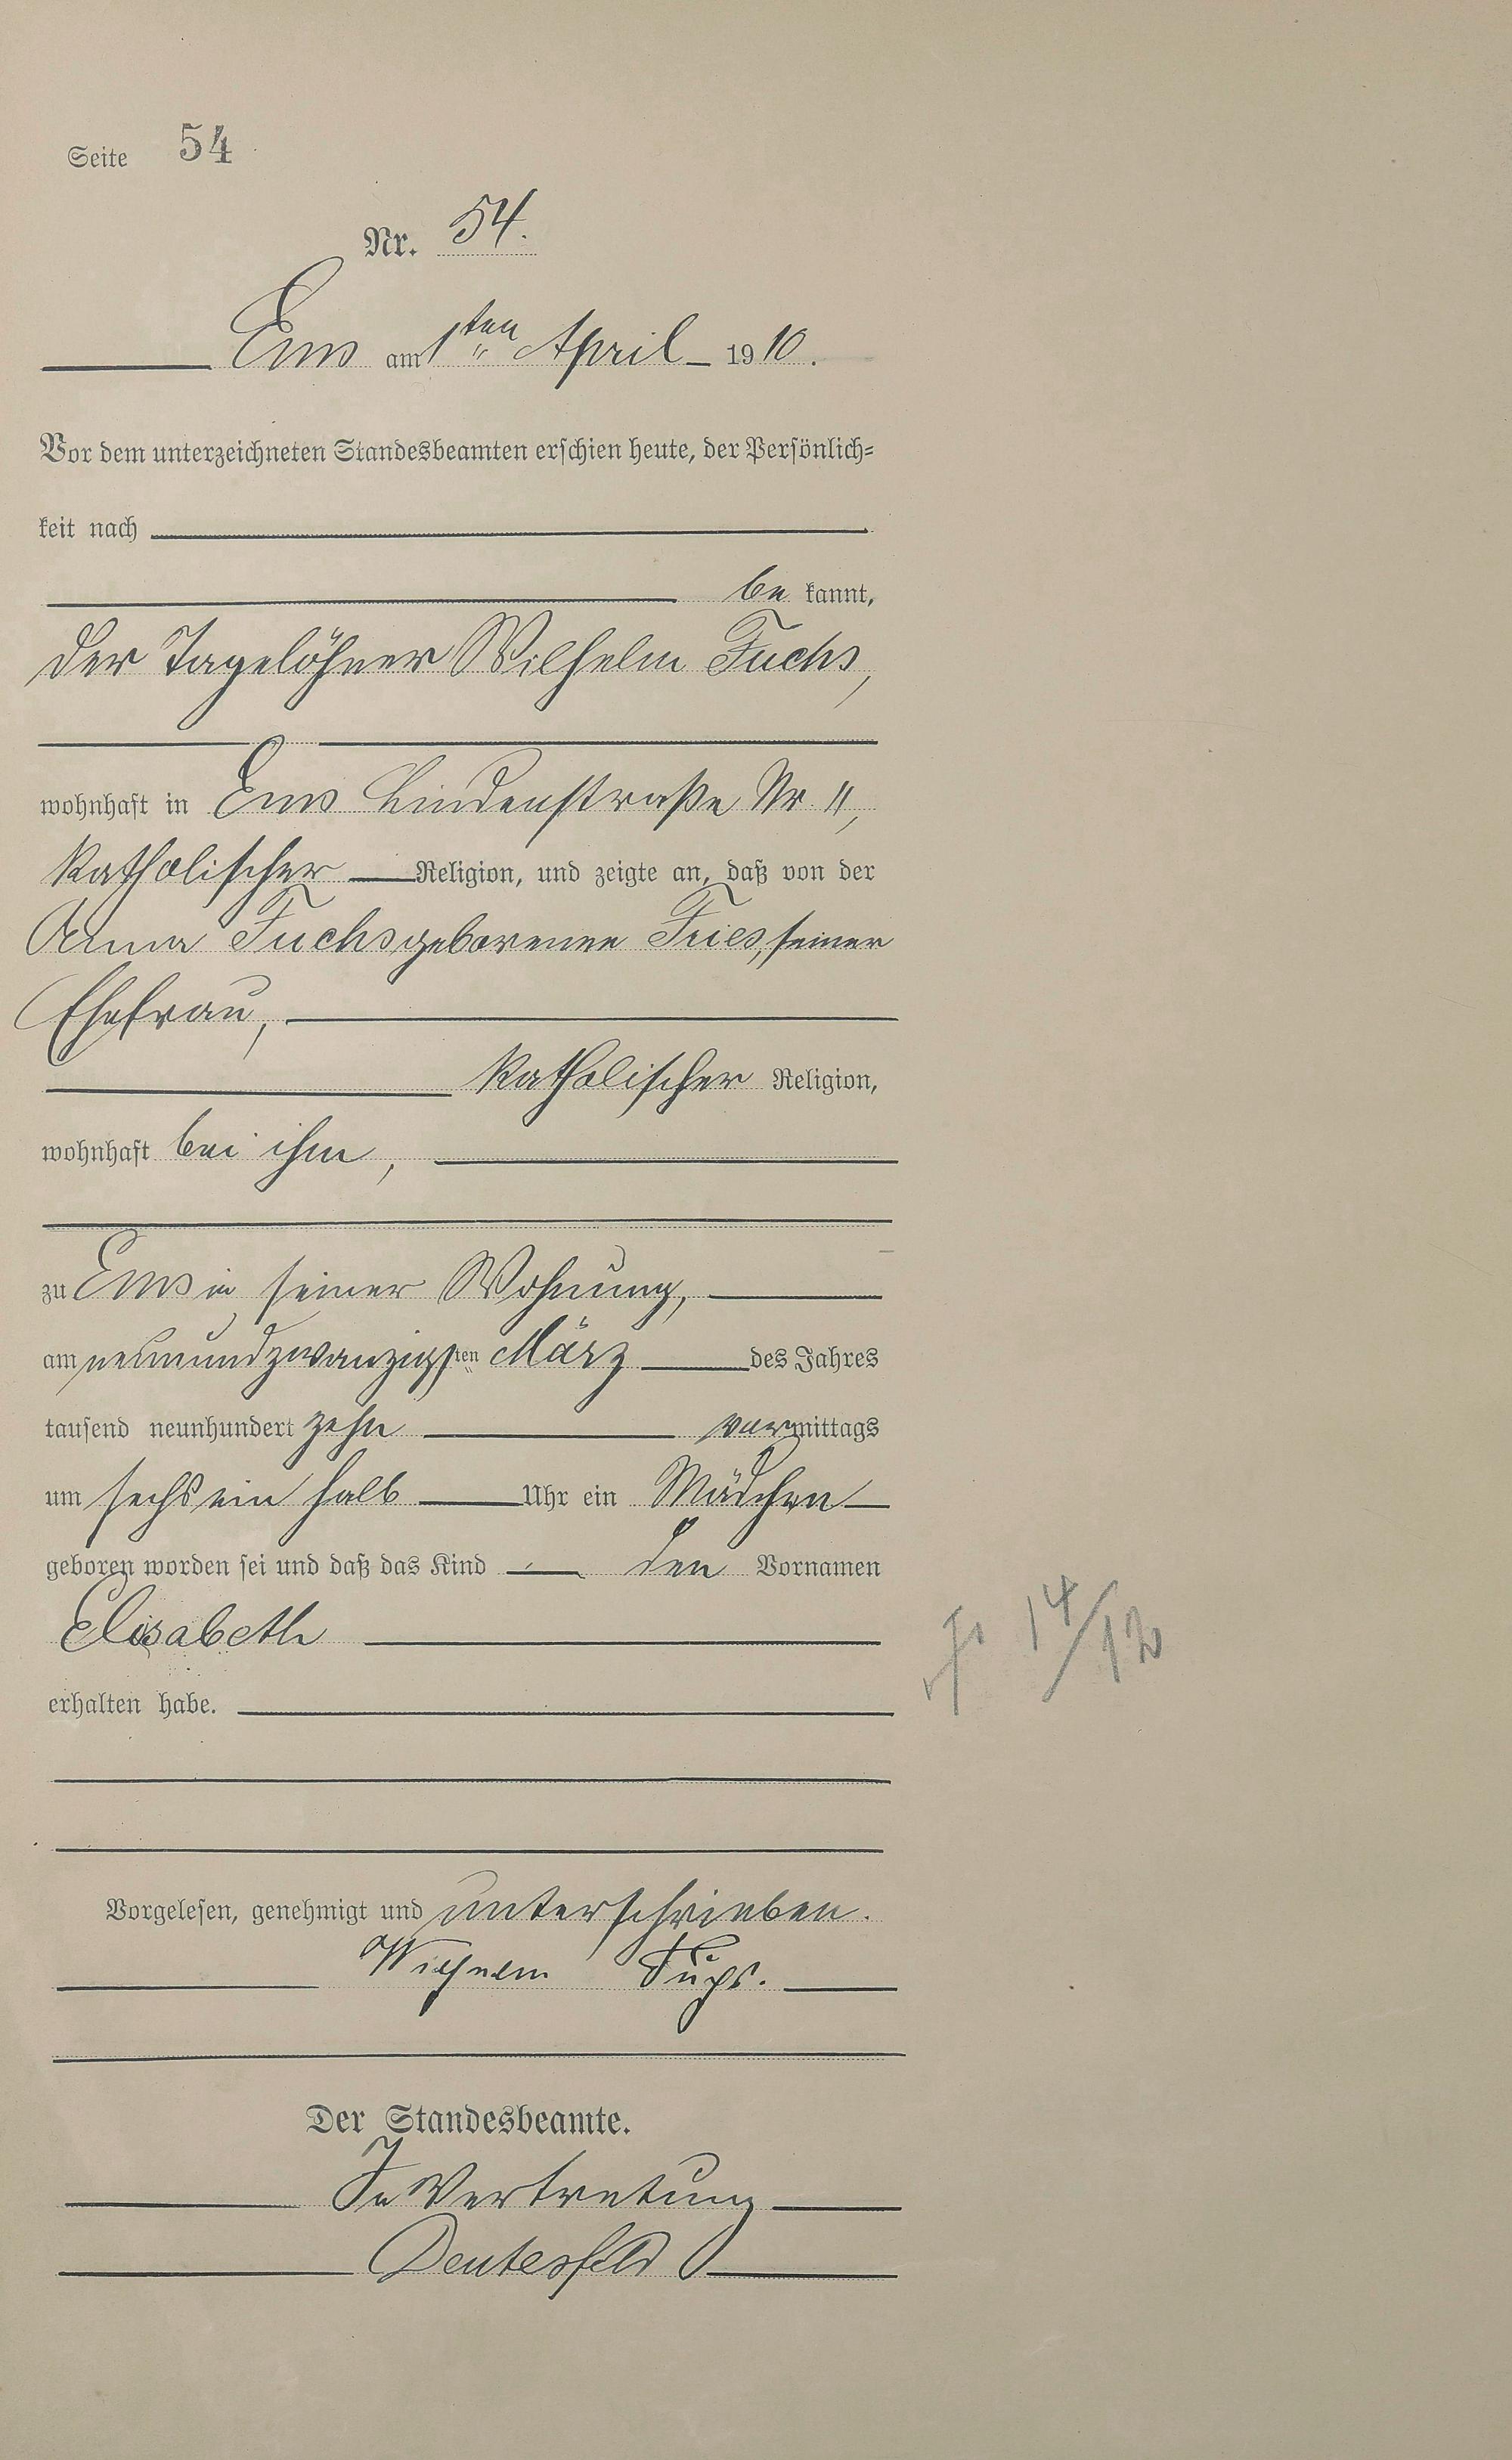 Seite 54
Nr. 54.
Ems am 1ten April 1910.
Vor dem unterzeichneten Standesbeamten erschien heute, der Persönlich=
keit nach
be kannt,
der Tagelöhner Wilhelm Fuchs,
wohnhaft in Ems Lindenstraße Nr 11,
katholischer Religion, und zeigte an, daß von der
Anna Fuchs geborenen Fries, seiner
Ehefrau,
katholischer Religion,
wohnhaft bei ihm,
zu Ems in seiner Wohnung,
am neunundzwanzigsten März des Jahres
tausend neunhundert zehn vormittags
um sechs ein halb Uhr ein Mädchen
geboren worden sei und daß das Kind den Vornamen
Elisabeth
14/12
erhalten habe.
Vorgelesen, genehmigt und unterschrieben.
Wilhelm Fuchs.
Der Standesbeamte.
In Vertretung